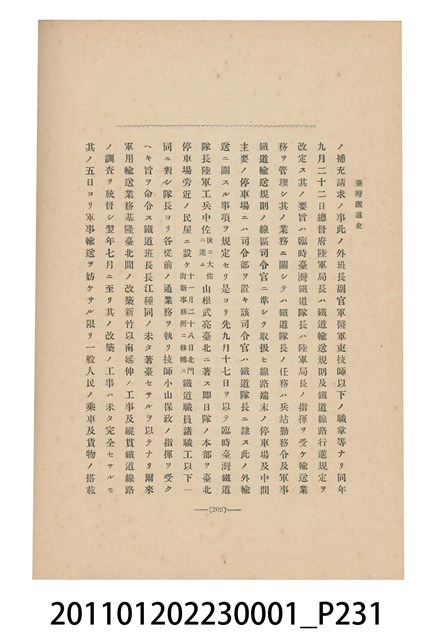 臺灣鐵道史
ノ補充請求ノ事此ノ外班長副官軍醫軍吏技師以下ノ職掌等ナリ同年
九月二十二日總督府陸軍局長ハ鐵道輸送規則及鐵道線路行進規定ヲ
改定ス其ノ要旨ハ臨時臺灣鐵道隊長ハ陸軍局長ノ指揮ヲ受ケ輸送業
務ヲ管理シ其ノ業務ニ關シテハ鐵道隊長ノ任務ハ兵站勤務令及軍事
鐵道輸送規則ノ線區司令官ニ準シテ取扱ヒ線路端末ノ停車場及中間
主要ノ停車場ニハ司令部ヲ置キ該司令官ハ鐵道隊長ニ隷ス此ノ外輸
送ニ關スル事項ヲ規定セリ是ヨリ先九月十七日ヲ以テ臨時臺灣鐵道
隊長陸軍工兵中佐後ニ大佐ニ進ム山根武亮臺北ニ著ス即日隊ノ本部ヲ臺北
停車場旁近ノ民屋ニ設ケ十一月二十八日北門街新事務所ニ移轉ス鐵道職員諸職工以下一
同ニ對シ隊長ヨリ各從前ノ通業務ヲ執リ技師小山保政ノ指揮ヲ受ク
ヘキ旨ヲ命令ス鐵道班長長江種同ノ未タ著臺セサルヲ以テナリ爾來
軍用輸送業務基隆臺北間ノ改築新竹以南延伸ノ工事及縱貫鐵道線路
ノ調査ヲ統督シ翌年七月ニ至リ其ノ改築ノ工事ハ未タ完全セサルモ
其ノ五日ヨリ軍事輸送ヲ妨ケサル限リ一般人民ノ乘車及貨物ノ搭載
(202)
201101202230001_P231